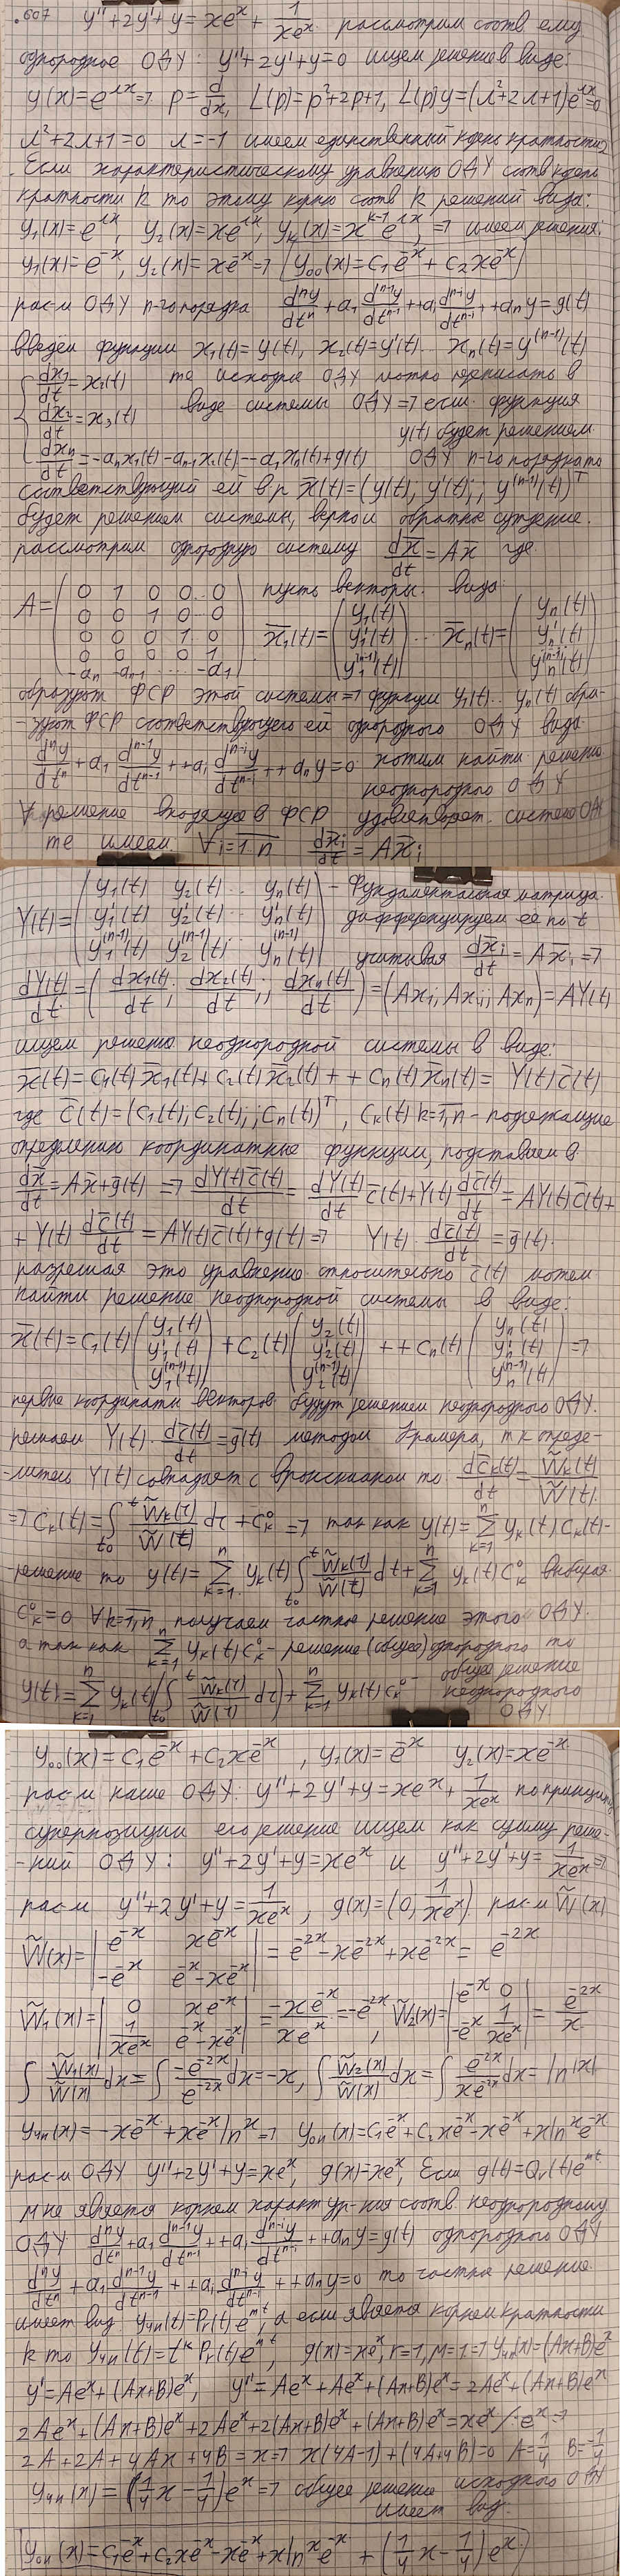 .607 y''+2y'+y=xe^x+1/(xe^x) рассмотрим соотв ему
однородное ОДУ: y''+2y'+y=0 ищем решение в виде:
y(x)=e^{λx}⇒ p=d/dx, L(p)=p²+2p+1, L(p)y=(λ²+2λ+1)e^{λx}=0
λ²+2λ+1=0 λ=-1 имеем единственный корень кратности 2
Если характеристическому уравнению ОДУ соотв корень
кратности k то этому корню соотв k решений вида:
y₁(x)=e^{λx}, y₂(x)=xe^{λx}, y_k(x)=x^{k-1}e^{λx}, ⇒ имеем решения:
y₁(x)=e^{-x}, y₂(x)=xe^{-x}⇒ y₀₀(x)=C₁e^{-x}+C₂xe^{-x}
рас-м ОДУ n-го порядка d^ny/dt^n+a₁d^{n-1}y/dt^{n-1}++a_i d^{n-i}y/dt^{n-i}++a_ny=g(t)
введём функции x₁(t)=y(t), x₂(t)=y'(t).. x_n(t)=y^{(n-1)}(t)
dx₁/dt=x₂(t) те исходное ОДУ можно переписать в
dx₂/dt=x₃(t) виде системы ОДУ⇒ если функция
y(t) будет решением
dx_n/dt=-a_nx₁(t)-a_{n-1}x₂(t)--a₁x_n(t)+g(t) ОДУ n-го порядка то
соответствующий ей в.р x̄(t)=(y(t); y'(t);; y^{(n-1)}(t))^T
будет решением системы, верно и обратное суждение.
рассмотрим однородную систему dx̄/dt=Ax̄ где
A=(0 1 0 0..0 пусть векторы вида:
0 0 1 0..0
0 0 0 1 0 x̄₁(t)=(y₁(t) y₁'(t) y₁^{(n-1)}(t)) ... x̄_n(t)=(y_n(t) y_n'(t) y_n^{(n-1)}(t))
0 0 0 0 1
-a_n -a_{n-1} ... -a₁)
образуют ФСР этой системы⇒ функции y₁(t)..y_n(t) обра-
-зуют ФСР соответствующего ей однородного ОДУ вида
d^ny/dt^n+a₁d^{n-1}y/dt^{n-1}++a_i d^{n-i}y/dt^{n-i}++a_ny=0 хотим найти решение
неоднородного ОДУ
∀ решение входящее в ФСР удовлетворяет системе ОДУ
те имеем ∀i=1,n dx̄_i/dt=Ax̄_i
Y(t)=(y₁(t) y₂(t)..y_n(t) - Фундаментальная матрица
y₁'(t) y₂'(t)..y_n'(t) дифференцируем её по t
y₁^{(n-1)}(t) y₂^{(n-1)}(t) y_n^{(n-1)}(t)) учитывая dx̄_i/dt=Ax̄_i⇒
dY(t)/dt=(dx₁(t)/dt; dx₂(t)/dt;; dx_n(t)/dt)=(Ax₁; Ax_i; Ax_n)=AY(t)
ищем решение неоднородной системы в виде:
x̄(t)=C₁(t)x̄₁(t)+C₂(t)x̄₂(t)++C_n(t)x̄_n(t)=Y(t)c̄(t)
где c̄(t)=(C₁(t);C₂(t);;C_n(t))^T, C_k(t) k=1,n - подлежащие
определению координатные функции, подставляем в
dx̄/dt=Ax̄+ḡ(t) ⇒ dY(t)c̄(t)/dt=dY(t)/dt c̄(t)+Y(t)dc̄(t)/dt=AY(t)c̄(t)+
+Y(t)dc̄(t)/dt=AY(t)c̄(t)+ḡ(t)⇒ Y(t)·dc̄(t)/dt=ḡ(t).
разрешая это уравнение относительно c̄(t) можем
найти решение неоднородной системы в виде:
x̄(t)=C₁(t)(y₁(t) y₁'(t) y₁^{(n-1)}(t))+C₂(t)(y₂(t) y₂'(t) y₂^{(n-1)}(t))++C_n(t)(y_n(t) y_n'(t) y_n^{(n-1)}(t))⇒
первые координаты векторов будут решением неоднородного ОДУ.
решаем Y(t)·dc̄(t)/dt=ḡ(t) методом Крамера, тк опреде-
-литель Y(t) совпадает с вронскианом то dc̄_k(t)/dt=W̃_k(t)/W̃(t)
⇒C_k(t)=∫_{t₀}^t W̃_k(τ)/W̃(τ)dτ+C_k^0⇒ так как y(t)=Σ_{k=1}^n y_k(t)C_k(t)-
-решение то y(t)=Σ_{k=1}^n y_k(t)∫_{t₀}^t W̃_k(τ)/W̃(τ)dτ+Σ_{k=1}^n y_k(t)C_k^0 выбирая
C_k^0=0 ∀k=1,n получаем частное решение этого ОДУ.
а так как Σ_{k=1}^n y_k(t)C_k^0 - решение (общее) однородного то
y(t)=Σ_{k=1}^n y_k(t)(∫_{t₀}^t W̃_k(τ)/W̃(τ)dτ)+Σ_{k=1}^n y_k(t)C_k^0 - общее решение
неоднородного
ОДУ
y₀₀(x)=C₁e^{-x}+C₂xe^{-x}, y₁(x)=e^{-x} y₂(x)=xe^{-x}
рас-м наше ОДУ: y''+2y'+y=xe^x+1/(xe^x) по принципу
суперпозиции его решение ищем как сумму реше-
-ний ОДУ: y''+2y'+y=xe^x и y''+2y'+y=1/(xe^x)⇒
рас-м y''+2y'+y=1/(xe^x), g(x)=(0, 1/(xe^x)) рас-м W̃(x)
W̃(x)=|e^{-x} xe^{-x}; -e^{-x} e^{-x}-xe^{-x}|=e^{-2x}-xe^{-2x}+xe^{-2x}=e^{-2x}
W̃₁(x)=|0 xe^{-x}; 1/(xe^x) e^{-x}-xe^{-x}|=-xe^{-x}/(xe^x)=-e^{-2x}, W̃₂(x)=|e^{-x} 0; -e^{-x} 1/(xe^x)|=e^{-2x}/x
∫W̃₁(x)/W̃(x)dx=∫-e^{-2x}/e^{-2x}dx=-x, ∫W̃₂(x)/W̃(x)dx=∫e^{-2x}/(xe^{-2x})dx=ln|x|
y_чн(x)=-xe^{-x}+xe^{-x}ln^x⇒ y_он(x)=C₁e^{-x}+C₂xe^{-x}-xe^{-x}+xln^xe^{-x}
рас-м ОДУ y''+2y'+y=xe^x, g(x)=xe^x, Если g(t)=Q_r(t)e^{mt}
м не является корнем характ ур-ния соотв. неоднородному
ОДУ d^ny/dt^n+a₁d^{n-1}y/dt^{n-1}++a_i d^{n-i}y/dt^{n-i}++a_ny=g(t) однородного ОДУ
d^ny/dt^n+a₁d^{n-1}y/dt^{n-1}++a_i d^{n-i}y/dt^{n-i}++a_ny=0 то частное решение
имеет вид y_чн(t)=P_r(t)e^{mt}, а если является корнем кратности
k то y_чн(t)=t^kP_r(t)e^{mt}, g(x)=xe^x, r=1, м=1⇒ y_чн(x)=(Ax+B)e^x
y'=Ae^x+(Ax+B)e^x, y''=Ae^x+Ae^x+(Ax+B)e^x=2Ae^x+(Ax+B)e^x
2Ae^x+(Ax+B)e^x+2Ae^x+2(Ax+B)e^x+(Ax+B)e^x=xe^x /:e^x⇒
2A+2A+4Ax+4B=x⇒ x(4A-1)+(4A+4B)=0 A=1/4 B=-1/4
y_чн(x)=(1/4x-1/4)e^x⇒ общее решение исходного ОДУ
имеет вид:
y_он(x)=C₁e^{-x}+C₂xe^{-x}-xe^{-x}+xln^xe^{-x}+(1/4x-1/4)e^x